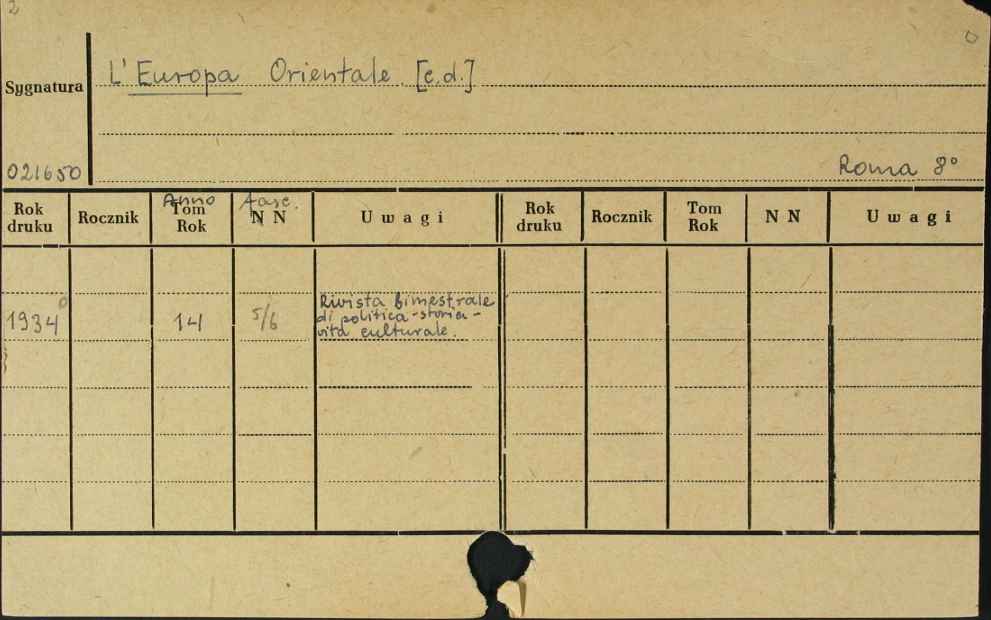 2
L'Europa Orientale. [c.d.]
Sygnatura
021650
Roma 8°
Anno fasc.
Rok druku Rocznik Tom Rok N N Uwagi Rok druku Rocznik Tom Rok N N Uwagi
Rivista bimestrale
1934 14 5/6 di politica-storia-
vita culturale.